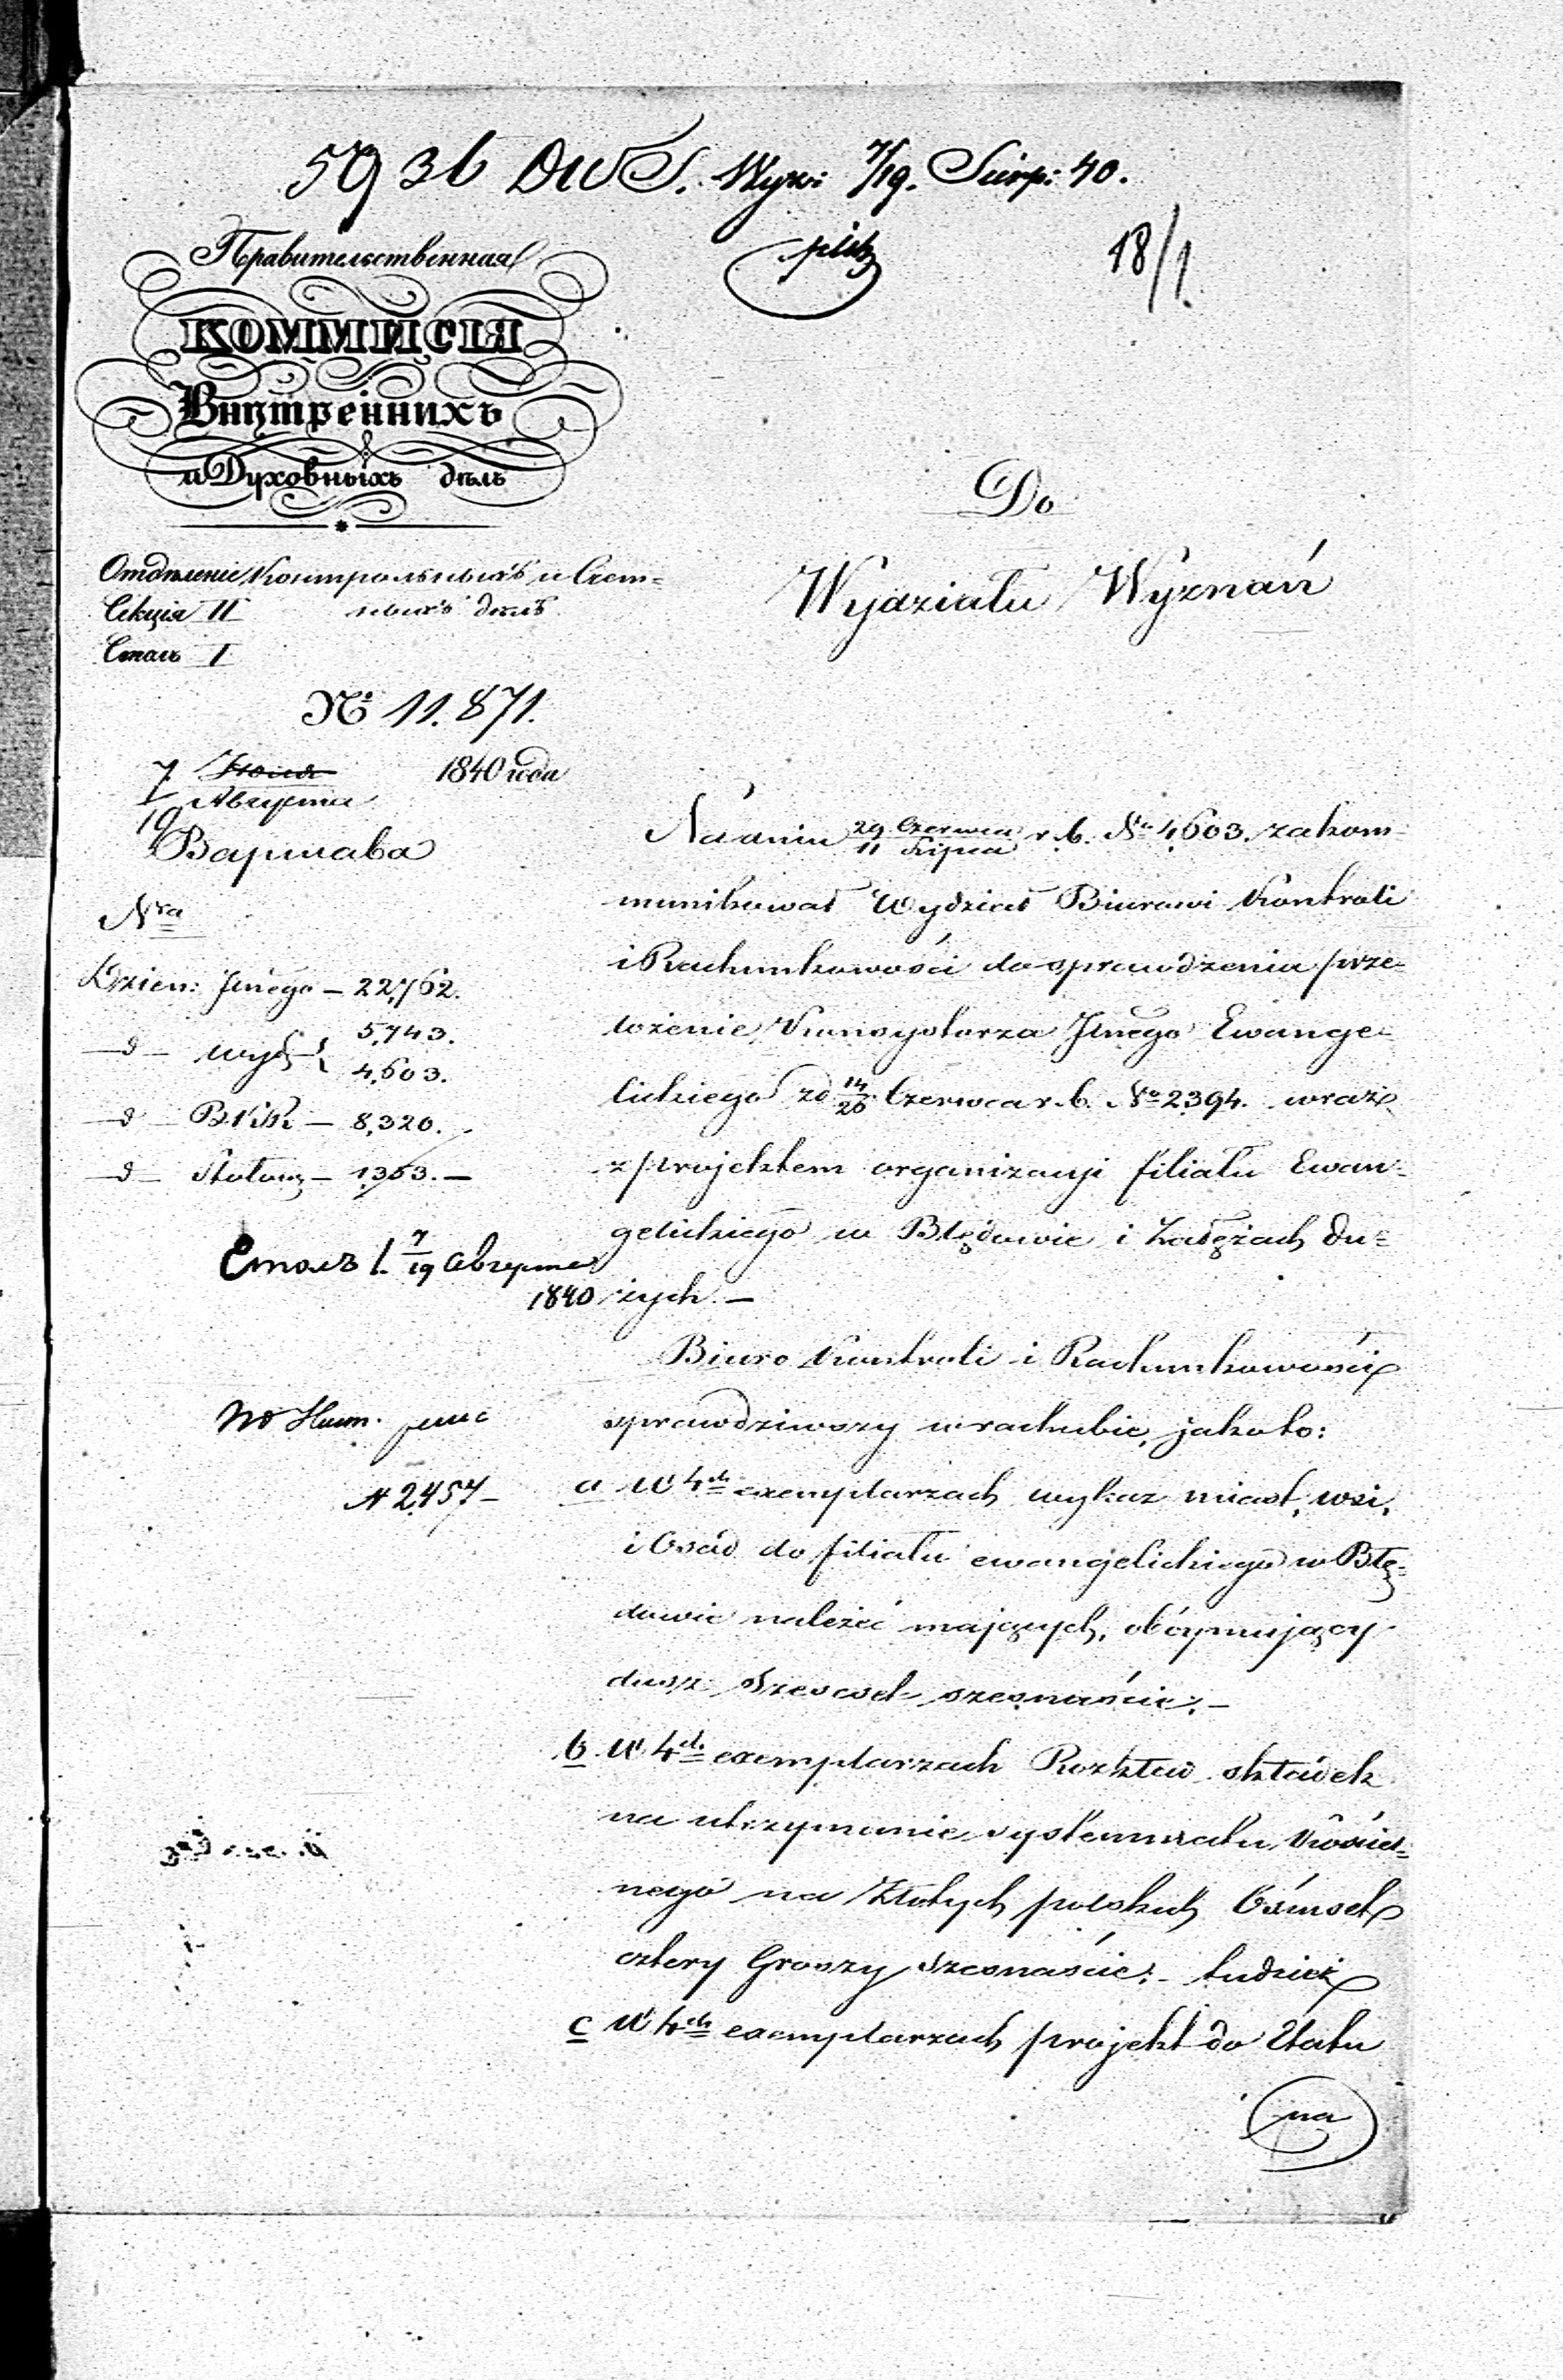 5936 DWS. Wyzn: 7/19. Sierp: 40.
18/1.
Правительственная
КОММИСІЯ
Внутреннихъ
и Духовныхъ дѣлъ
Отдѣленіе Контрольныхъ и Счет=
ныхъ дѣлъ
Секція II
Столъ I
№ 11.871.
7/19 Іюля Августа 1840 года
Варшава
Nra
Dzien: Jnego – 22,762.
–d– wydz { 5,743.
4,603.
–d– BKiR – 8,320.
–d– – 1,363. –
Do
Wydziału Wyznań
Na dniu 29 Czerwca / 11 Lipca r. b. No 4,603. zakom=
munikował Wydział Biurowi Kontroli
i Rachunkowości do sprawdzenia prze=
łożenie Konsystorza Jnego Ewange=
lickiego zd 14/26 Czerwca r. b. No 2394. wraz
z projektem organizacyi filiału Ewan=
gelickiego w Błędowie i Załężach Du=
żych. –
Столъ I. 7/19 Августа
1840
Biuro Kontroli i Rachunkowości
sprawdziwszy w rachubie, jakoto:
N 2457 –
a W 4ch exemplarzach wykaz miast, wsi,
i Osad do filiału ewangelickiego w Błę=
dowie należeć mających, obéymujący
dusz sześćset szesnaście; –
b W 4ch exemplarzach Rozkład składek
na utrzymanie systemmatu Kościel=
nego na Złotych polskich Ośmset
cztery Groszy szesnaście; – tudzież
c W 4ch exemplarzach projekt do Etatu
na